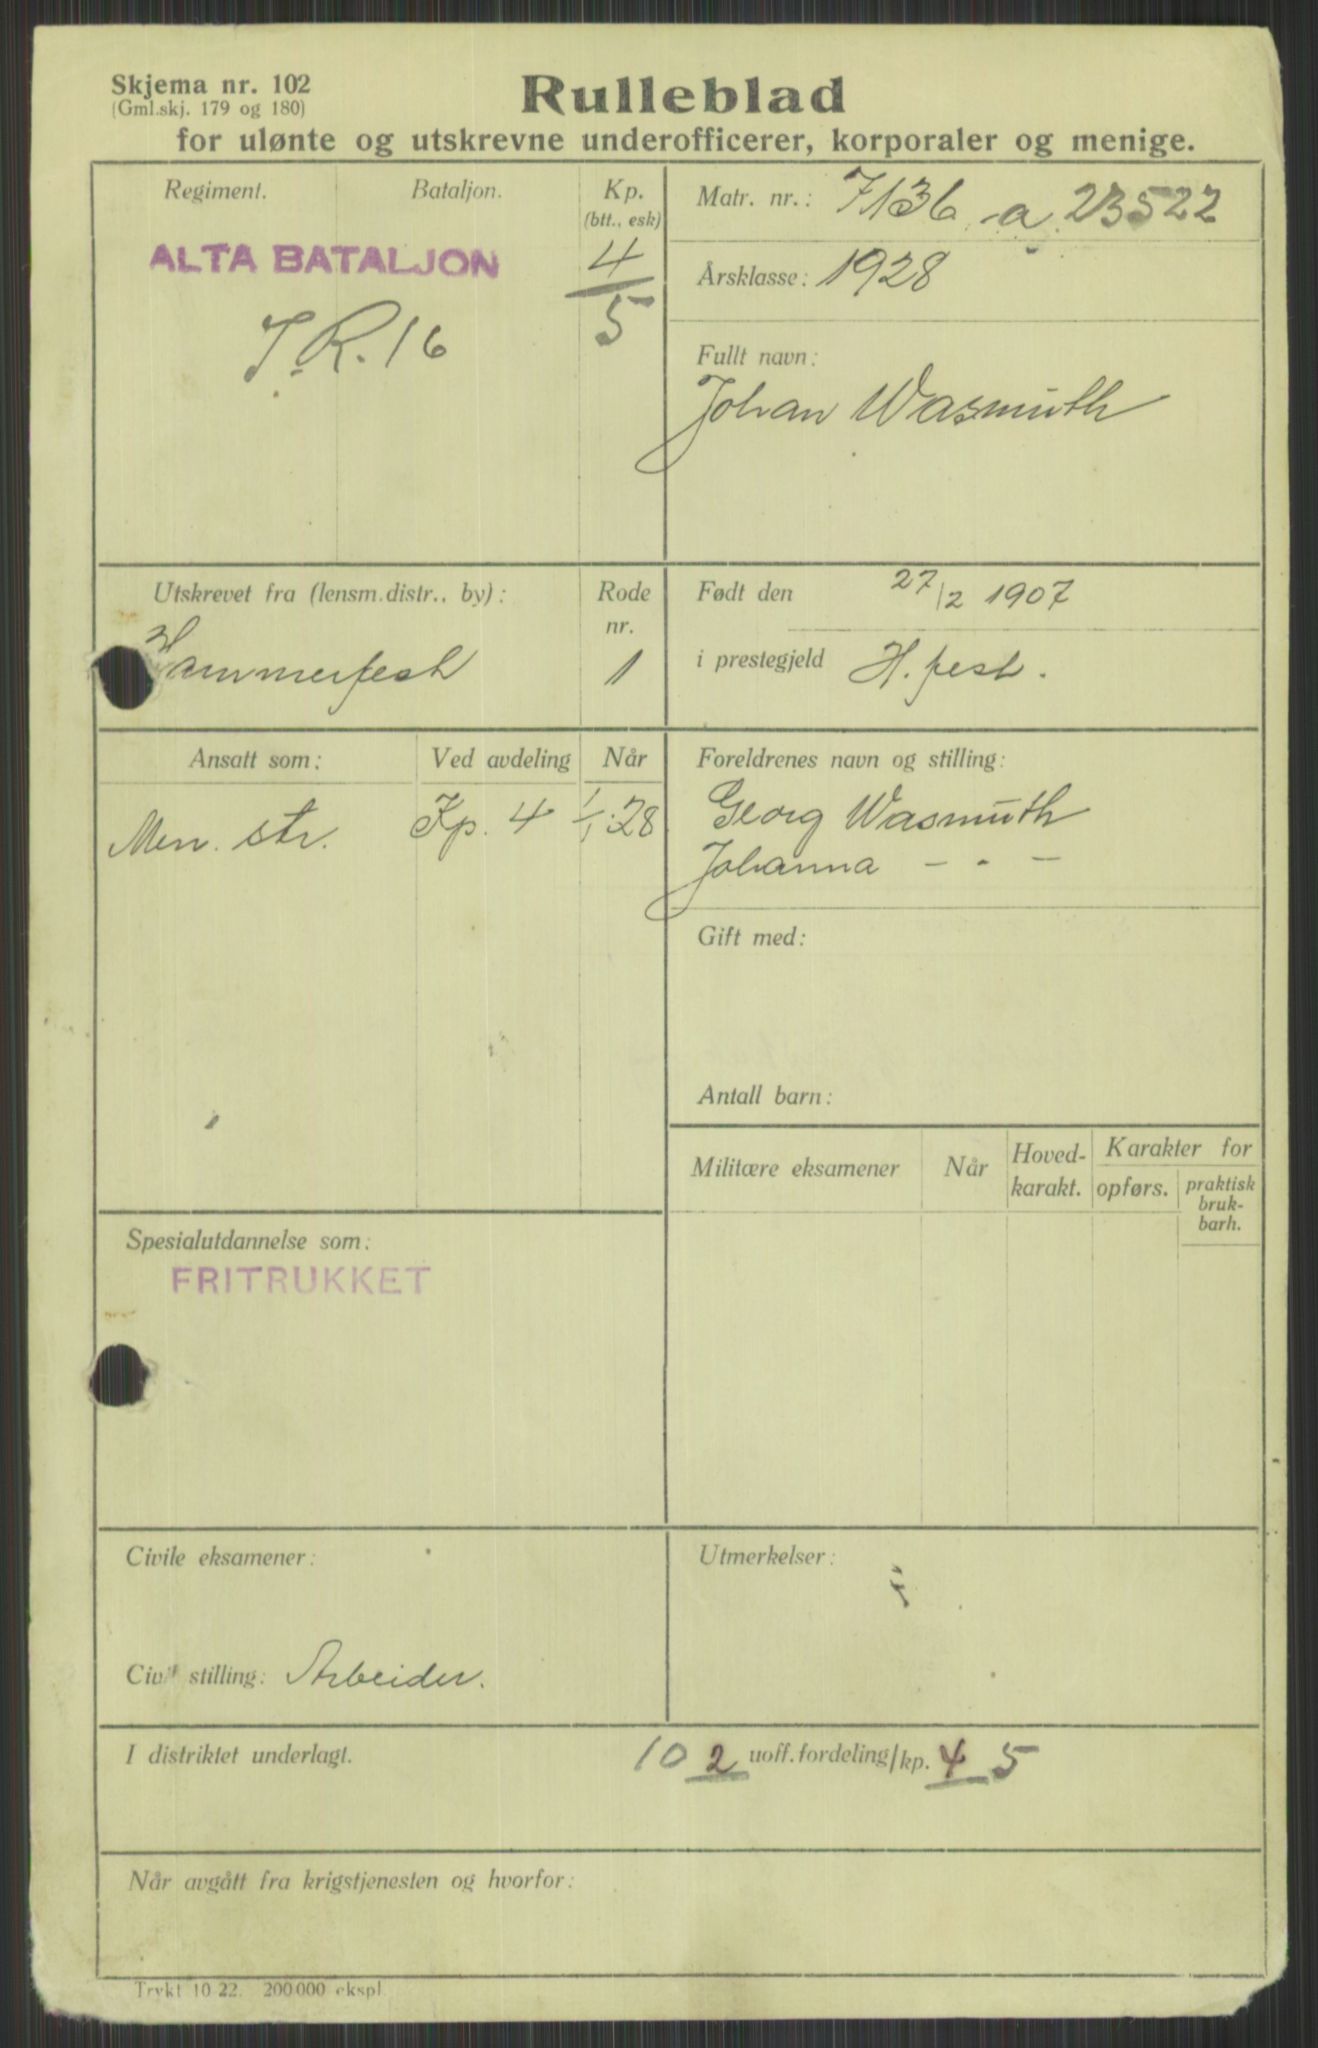 Skjema nr. 102
(Gml.skj. 179 og 180)
Rulleblad
for ulønte og utskrevne underofficerer, korporaler og menige.
Regiment.
Bataljon.
Kp.
(btt., esk)
ALTA BATALJON
4
5
I.R. 16
Matr. nr.: 7136 a 23522
Årsklasse: 1928
Fullt navn:
Johan Wasmuth
Utskrevet fra (lensm.distr., by):
Rode
nr.
Hammerfest
1
Født den 27/2 1907
i prestegjeld H.fest.
Ansatt som:
Ved avdeling
Når
Men. str.
Kp. 4
1/1-28
Foreldrenes navn og stilling:
Georg Wasmuth
Johanna – " –
Gift med:
Antall barn:
Militære eksamener
Når
Hoved-
karakt.
Karakter for
opførs.
praktisk
bruk-
barh.
Spesialutdannelse som:
FRITRUKKET
Civile eksamener:
Civil stilling: Arbeider.
Utmerkelser:
I distriktet underlagt.
10 2 uoff.fordeling/kp. 4 5
Når avgått fra krigstjenesten og hvorfor:
Trykt 10 22. 200000 ekspl